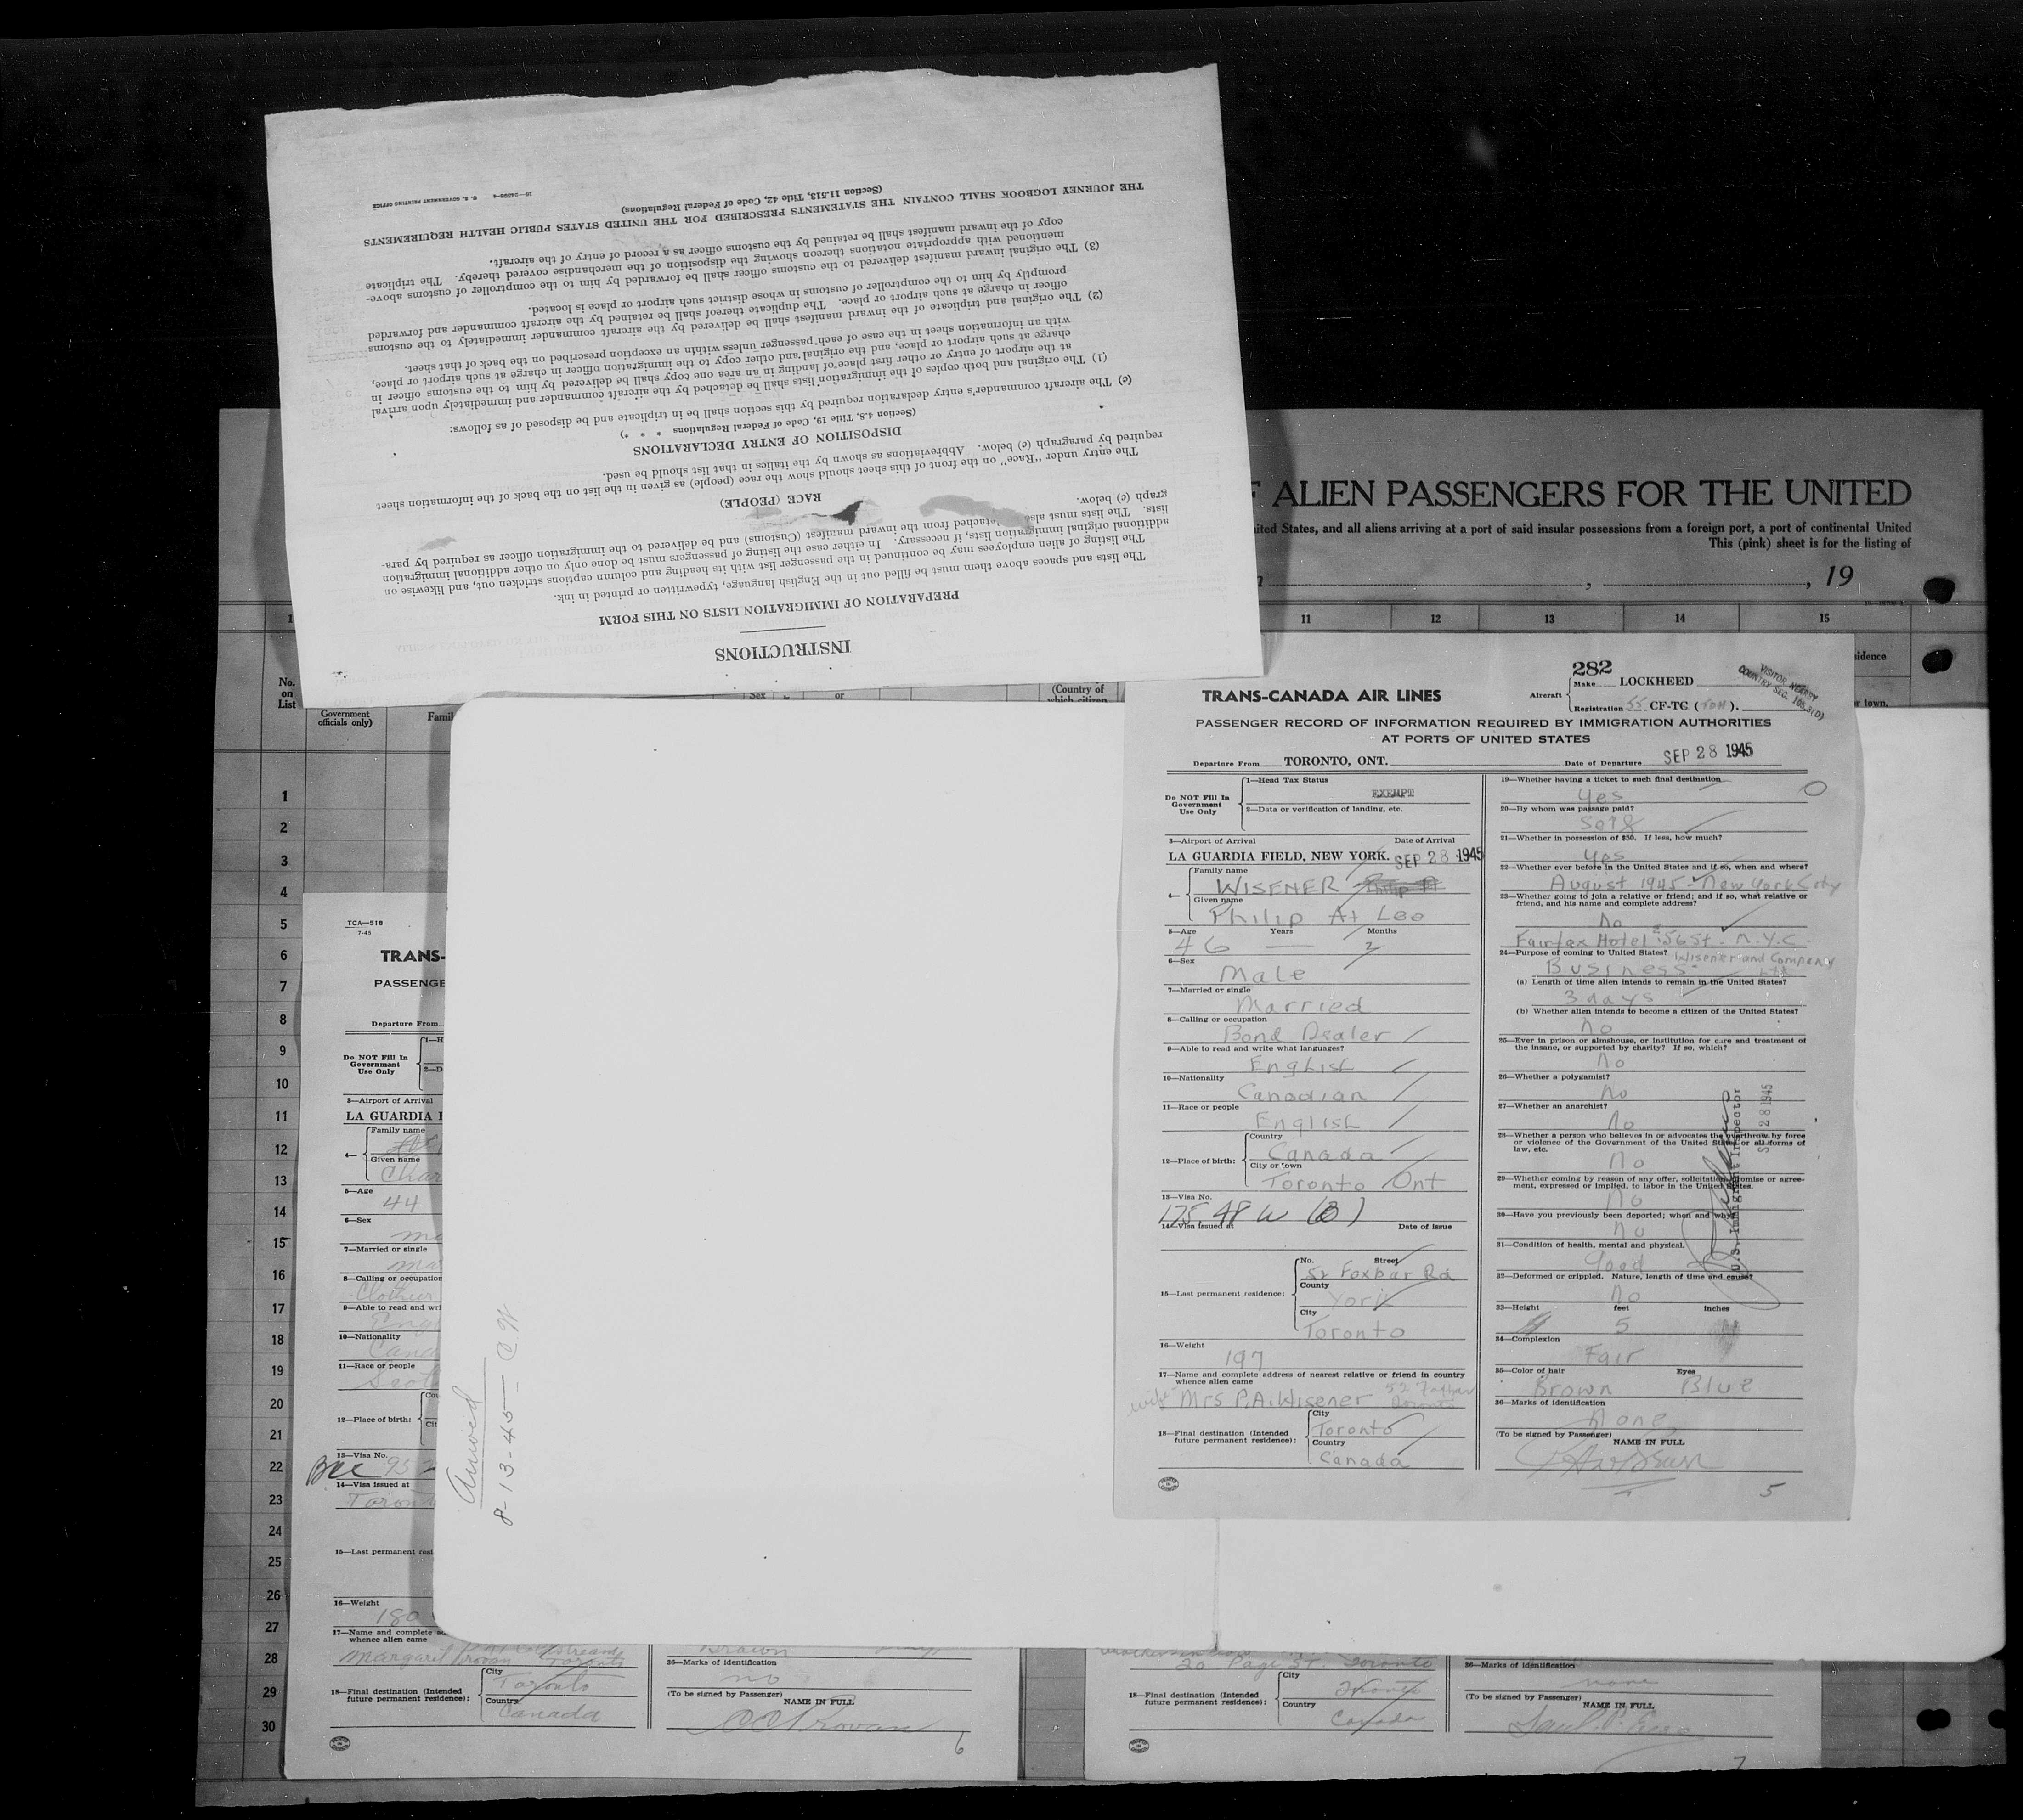 INSTRUCTIONS
PREPARATION OF IMMIGRATION LISTS ON THIS FORM
The lists and spaces above them must be filled out in the English language, typewritten or printed in ink.
The listing of alien employees may be continued in the passenger list with its heading and column captions stricken out, and likewise on
additional original immigration lists, if necessary. In either case the listing of passengers must be done only on other additional immigration
lists. The lists must also detached from the inward manifest (Customs) and be delivered to the immigration officer as required by para-
graph (c) below.
RACE (PEOPLE)
The entry under "Race" on the front of this sheet should show the race (people) as given in the list on the back of the information sheet
required by paragraph (c) below. Abbreviations as shown by the italics in that list should be used.
DISPOSITION OF ENTRY DECLARATIONS
(Section 4.8, Title 19, Code of Federal Regulations * * *)
(c) The aircraft commander's entry declaration required by this section shall be in triplicate and be disposed of as follows:
(1) The original and both copies of the immigration lists shall be detached by the aircraft commander and immediately upon arrival
at the airport of entry or other first place of landing in an area one copy shall be delivered by him to the customs officer in
charge at such airport or place, and the original and other copy to the immigration officer in charge at such airport or place,
with an information sheet in the case of each passenger unless within an exception prescribed on the back of that sheet.
(2) The original and triplicate of the inward manifest shall be delivered by the aircraft commander immediately to the customs
officer in charge at such airport or place. The duplicate thereof shall be retained by the aircraft commander and forwarded
promptly by him to the comptroller of customs in whose district such airport or place is located.
(3) The original inward manifest delivered to the customs officer shall be forwarded by him to the comptroller of customs above-
mentioned with appropriate notations thereon showing the disposition of the merchandise covered thereby. The triplicate
copy of the inward manifest shall be retained by the customs officer as a record of entry of the aircraft.
THE JOURNEY LOGBOOK SHALL CONTAIN THE STATEMENTS PRESCRIBED FOR THE UNITED STATES PUBLIC HEALTH REQUIREMENTS
(Section 11.513, Title 42, Code of Federal Regulations)
U. S. GOVERNMENT PRINTING OFFICE
F ALIEN PASSENGERS FOR THE UNITED
ited States, and all aliens arriving at a port of said insular possessions from a foreign port, a port of continental United
This (pink) sheet is for the listing of
, , 19
11 12 13 14 15
No.
on
List
Government
officials only)
Famil
Sex
or
(Country of
which citizen
idence
r town,
1
2
3
4
5
6
7
8
9
10
11
12
13
14
15
16
17
18
19
20
21
22
23
24
25
26
27
28
29
30
282
TRANS-CANADA AIR LINES
Aircraft
Make LOCKHEED
Registration 55 CF-TC ( ).
VISITOR NEARBY
COUNTRY SEC.
PASSENGER RECORD OF INFORMATION REQUIRED BY IMMIGRATION AUTHORITIES
AT PORTS OF UNITED STATES
Departure From TORONTO, ONT. Date of Departure SEP 28 1945
Do NOT Fill In
Government
Use Only
1—Head Tax Status
EXEMPT
2—Data or verification of landing, etc.
3—Airport of Arrival Date of Arrival
LA GUARDIA FIELD, NEW YORK. SEP 28 1945
4—
Family name
WISENER
Given name
Philip A+ Lee
5—Age Years Months
46 — 2
6—Sex
Male
7—Married or single
Married
8—Calling or occupation
Bond Dealer
9—Able to read and write what languages?
English
10—Nationality
Canadian
11—Race or people
English
12—Place of birth:
Country
Canada
City or town
Toronto Ont
13—Visa No.
175 48 W (B)
14—Visa issued at Date of issue
15—Last permanent residence:
No. Street
52 Foxbar Rd
County
York
City
Toronto
16—Weight
197
17—Name and complete address of nearest relative or friend in country
whence alien came
wife Mrs P.A. Wisener 52 Foxbar Toronto
18—Final destination (Intended
future permanent residence):
City
Toronto
Country
Canada
19—Whether having a ticket to such final destination
Yes
20—By whom was passage paid?
Self
21—Whether in possession of $50. If less, how much?
Yes
22—Whether ever before in the United States and if so, when and where?
August 1945 - New York City
23—Whether going to join a relative or friend; and if so, what relative or
friend, and his name and complete address?
No
Fairfax Hotel E 56 St - N.Y.C.
24—Purpose of coming to United States? Wisener and Company Ltd
Business
(a) Length of time alien intends to remain in the United States?
3 days
(b) Whether alien intends to become a citizen of the United States?
No
25—Ever in prison or almshouse, or institution for care and treatment of
the insane, or supported by charity? If so, which?
No
26—Whether a polygamist?
No
27—Whether an anarchist?
No
28—Whether a person who believes in or advocates the overthrow by force
or violence of the Government of the United States or all forms of
law, etc.
No
29—Whether coming by reason of any offer, solicitation, promise or agree-
ment, expressed or implied, to labor in the United States.
No
30—Have you previously been deported; when and why?
No
31—Condition of health, mental and physical.
Good
32—Deformed or crippled. Nature, length of time and cause?
No
33—Height feet inches
5
34—Complexion
Fair
35—Color of hair Eyes
Brown Blue
36—Marks of identification
None
(To be signed by Passenger)
NAME IN FULL
5
U.S. Immigrant Inspector
SEP 28 1945
TCA—518
7-45
TRANS-
PASSENGE
Departure From
Do NOT Fill In
Government
Use Only
1—H
2—D
3—Airport of Arrival
LA GUARDIA F
4—
Family name
Given name
Char
5—Age
44
6—Sex
ma
7—Married or single
mar
8—Calling or occupation
Clothier
9—Able to read and wri
Eng
10—Nationality
Cana
11—Race or people
Scot
12—Place of birth:
Cou
Cit
13—Visa No.
14—Visa issued at
Toron
15—Last permanent resi
16—Weight
180
17—Name and complete ad
whence alien came
Margaret Provan Toronto
18—Final destination (Intended
future permanent residence):
City
Toronto
Country
Canada
Brown
36—Marks of identification
no
(To be signed by Passenger)
NAME IN FULL
C C Provan
6
Arrived
8-13-45— C W
20 Page St. Toronto
18—Final destination (Intended
future permanent residence):
City
Toronto
Country
Canada
36—Marks of identification
none
(To be signed by Passenger)
NAME IN FULL
7